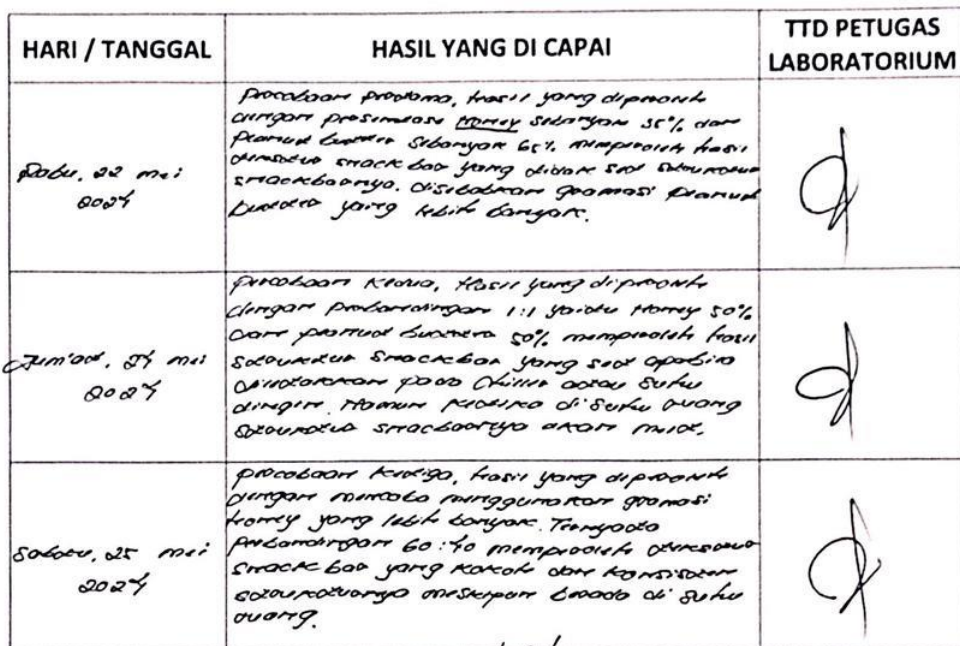 HARI / TANGGAL
HASIL YANG DI CAPAI
TTD PETUGAS
LABORATORIUM
Rabu, 22 mei
2024
Percobaan pertama, Hasil yang diperoleh
dengan presentase Honey sebanyak 35% dan
Peanut butter sebanyak 65% memperoleh hasil
snack bar yang tidak set strukture
snackbarnya. disebabkan gramasi Peanut
butter yang lebih banyak.
Jum'at, 24 mei
2024
percobaan Kedua, Hasil yang diperoleh
dengan perbandingan 1:1 yaitu Honey 50%
dan peanut butter 50% memperoleh hasil
strukture snackbar yang set apabila
diletakkan pada Chiller atau suhu
dingin. Namun ketika di suhu ruang
snacbarnya akan
Sabtu, 25 mei
2024
percobaan ketiga, hasil yang diperoleh
dengan mencoba menggunakan gramasi
honey yang lebih banyak. Ternyata
perbandingan 60:40 memperoleh
snack bar yang kokoh dan konsisten
meskipun berada di suhu
ruang.